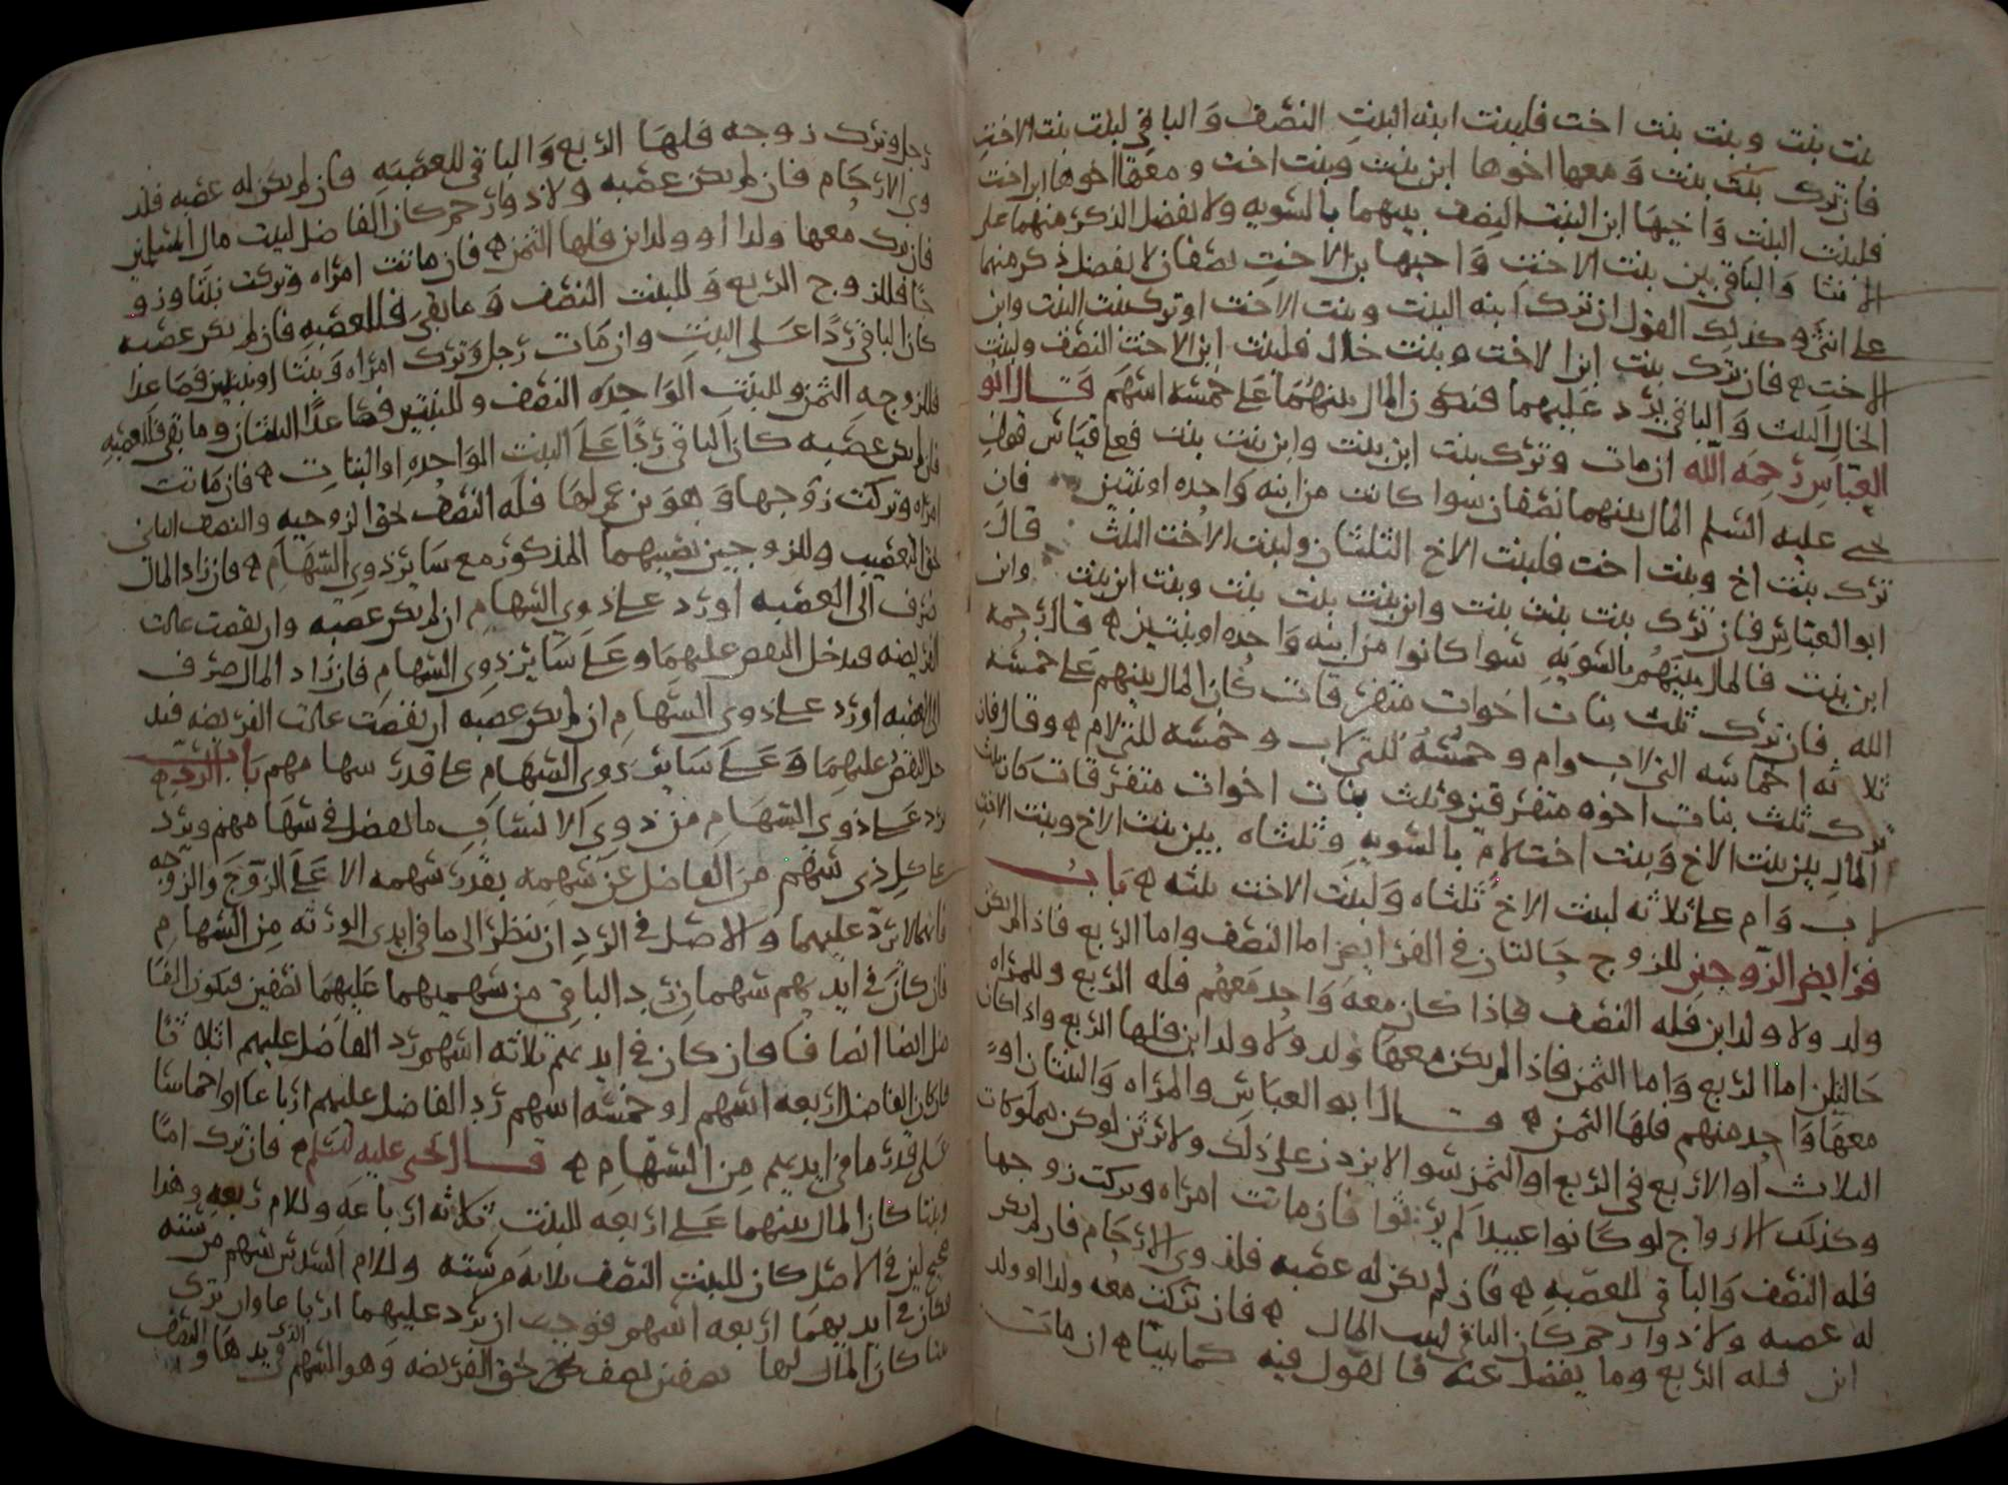 بنت بنت وبنت بنت اخت فلبنت ابنه البنت النصف والباقي لبنت بنت الاخت
فان ترك بنت بنت ومعها اخوها ابن بنت وبنت اخت ومعها اخوها ابن اخت
فلبنت البنت واخيها ابن البنت النصف بينهما بالسويه ولا يفضل الذكر منهما على
الانثا والباقي بين بنت الاخت واخيها بن الاخت نصفان لا يفضل ذكر منهما
على انثى وكذلك القول ان ترك ابنه البنت وبنت الاخت او ترك بنت البنت وابن
الاخت ه فان ترك بنت ابن الاخت وبنت خال فلبنت ابن الاخت النصف ولبنت
الخال الثلث والباقي يرد عليهما فيكون المال بينهما على خمسه اسهم قال ابو
العباس رحمه الله ان مات وترك بنت ابن بنت وابن بنت بنت فعلى قياس قول
يحيى عليه السلم المال بينهما نصفان سوا كانت من ابنه واحده او بنتين فان
ترك بنت اخ وبنت اخت فلبنت الاخ الثلثان ولبنت الاخت الثلث قال
ابو العباس فان ترك بنت بنت بنت وابن بنت بنت وبنت ابن بنت وابن
ابن بنت فالمال بينهم بالسويه سوا كانوا من ابنه واحده او بنتين ه قال رحمه
الله فان ترك ثلث بنات اخوات متفرقات كان المال بينهم على خمسه
ثلاثه اخماسه التي لاب وام وخمسه للتي لاب وخمسه للتي لام ه وقال فان
ترك ثلث بنات اخوه متفرقين وثلث بنات اخوات متفرقات كان ثلث
المال بين بنت الاخ وبنت اخت لام بالسويه وثلثاه بين بنت الاخ وبنت الاخت
لاب وام على ثلاثه لبنت الاخ ثلثاه ولبنت الاخت ثلثه ه باب
فرايض الزوجين للزوج حالتان في الفرايض اما النصف واما الربع فاذا لم يكن
ولد ولا ولد ابن فله النصف فاذا كان معه واحد معهم فله الربع وللمراه
حالتان اما الربع واما الثمن فاذا لم يكن معها ولد ولا ولد ابن فلها الربع واذا كان
معها واحد منهم فلها الثمن ه قال ابو العباس والمراه والبنتان او
الثلاث او الاربع في الربع او الثمن سوا لا يزدن على ذلك ولا يرثن لو كن مملوكات
وكذلك الازواج لو كانوا عبيدا لم يرثوا فان ماتت امراه وتركت زوجها
فله النصف والباقي للعصبه ه فان لم يكن له عصبه فلذوي الارحام فان لم يكن
له عصبه ولا ذوا رحم كان الباقي لبيت المال ه فان تركت معه ولدا او ولد
ابن فله الربع وما يفضل عنه فالقول فيه كما بينا ه ان مات
رجل وترك زوجه فلها الربع والباقي للعصبه فان لم يكن له عصبه فلذ
وي الارحام فان لم يكن عصبه ولا ذوا رحم كان الفاضل لبيت مال المسلمين
فان ترك معها ولدا او ولد ابن فلها الثمن ه فان ماتت امراه وتركت بنتا وزو
جا فللزوج الربع وللبنت النصف وما بقي فللعصبه فان لم يكن عصبه
كان الباقي ردا على البنت وان مات رجل وترك امراه وبنتا او بنتين فصاعدا
فللزوجه الثمن وللبنت الواحده النصف وللبنتين فصاعدا الثلثان وما بقي فللعصبه
فان لم يكن عصبه كان الباقي ردا على البنت الواحده او البنات ه فان ماتت
امراه وتركت زوجها وهو بن عم لها فله النصف بحق الزوجيه والنصف الباقي
بحق التعصيب وللزوجين نصيبهما المذكور مع ساير ذوي السهام ه فان زاد المال
صرف الى العصبه او رد على ذوي السهام ان لم يكن عصبه وان نقصت عالت
الفريضه فيدخل النقص عليهما وعلى ساير ذوي السهام فان زاد المال صرف
الى العصبه او رد على ذوي السهام ان لم يكن عصبه ان نقصت عالت الفريضه فيد
خل النقص عليهما وعلى ساير ذوي السهام على قدر سهامهم باب الرد ه
يرد على ذوي السهام من ذوي الانساب ما يفضل في سهامهم ويرد
على كل ذي سهم من الفاضل عن سهمه بقدر سهمه الا على الزوج والزوجه
فانه لا يرد عليهما والاصل في الرد ان ينظر الى ما في ايدي الورثه من السهام
فان كان في ايديهم سهمان رد الباقي من سهميهما عليهما نصفين فيكون الفا
ضل ايضا انصافا فان كان في ايديهم ثلاثه اسهم رد الفاضل عليهم اثلاثا
فان كان الفاضل اربعه اسهم او خمسه اسهم رد الفاضل عليهم ارباعا او اخماسا
على قدر ما في ايديهم من السهام ه قال يحيى عليه السلم فان ترك اما
وبنتا كان المال بينهما على اربعه للبنت ثلاثه ارباعه وللام ربعه وهذا
صحيح لان في الاصل كان للبنت النصف ثلاثه من سته وللام السدس سهم من سته
فكان في ايديهما اربعه اسهم فوجب ان يرد عليهما ارباعا وان ترك
بنتا كان المال لها نصفين نصف بحق الفريضه وهو السهم الذي في يدها والنصف